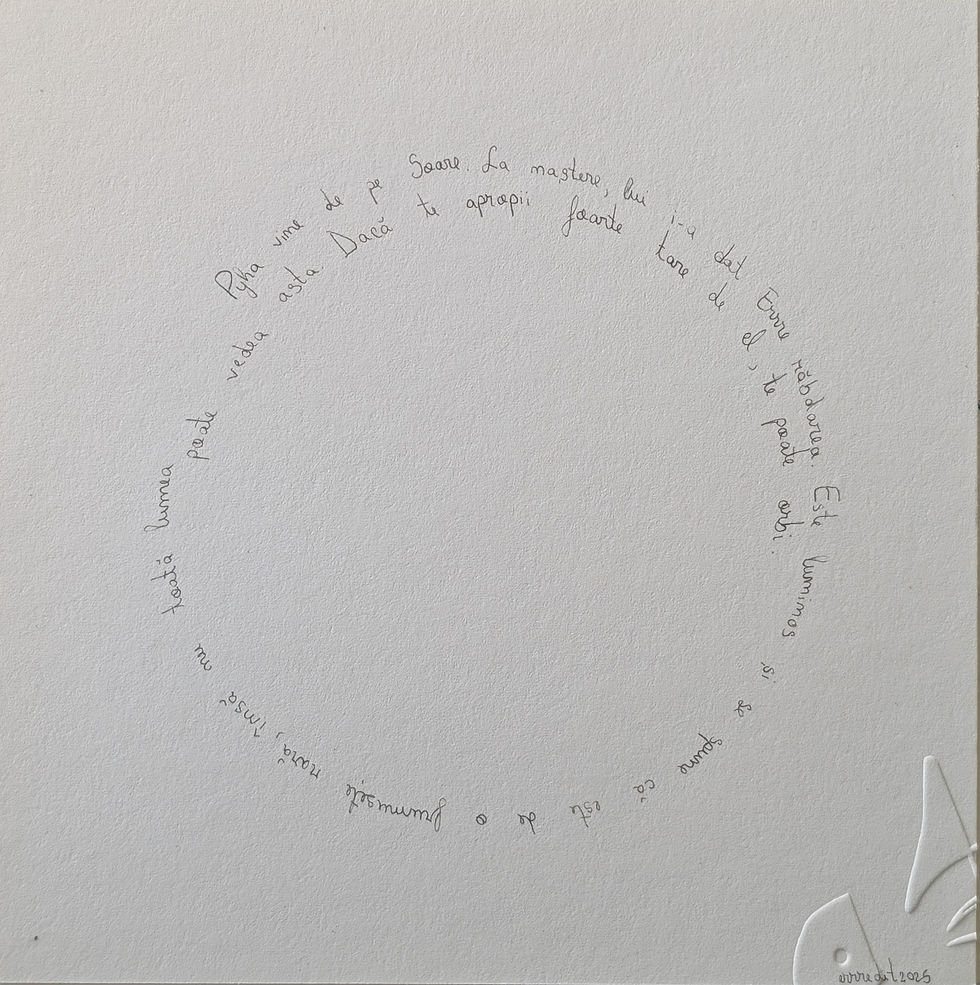 Pyha vine de pe Soare. La naștere, lui i-a dat Errre răbdarea. Este luminos și se spune că este de o frumusețe rară, însă nu toată lumea poate vedea asta. Dacă te apropii foarte tare de el, te poate orbi.
errredit2025